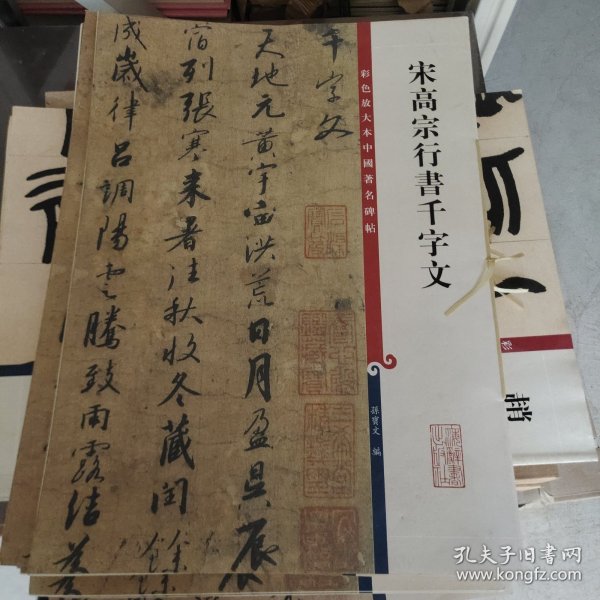 宋高宗行書千字文
彩色放大本中國著名碑帖
孫寶文 編
千字文
天地元黃宇宙洪荒日月盈昃辰
宿列張寒来暑往秋收冬藏閏餘
成歲律呂調陽雲騰致雨露結為
彩
趙
孔夫子旧书网
www.kongfz.com